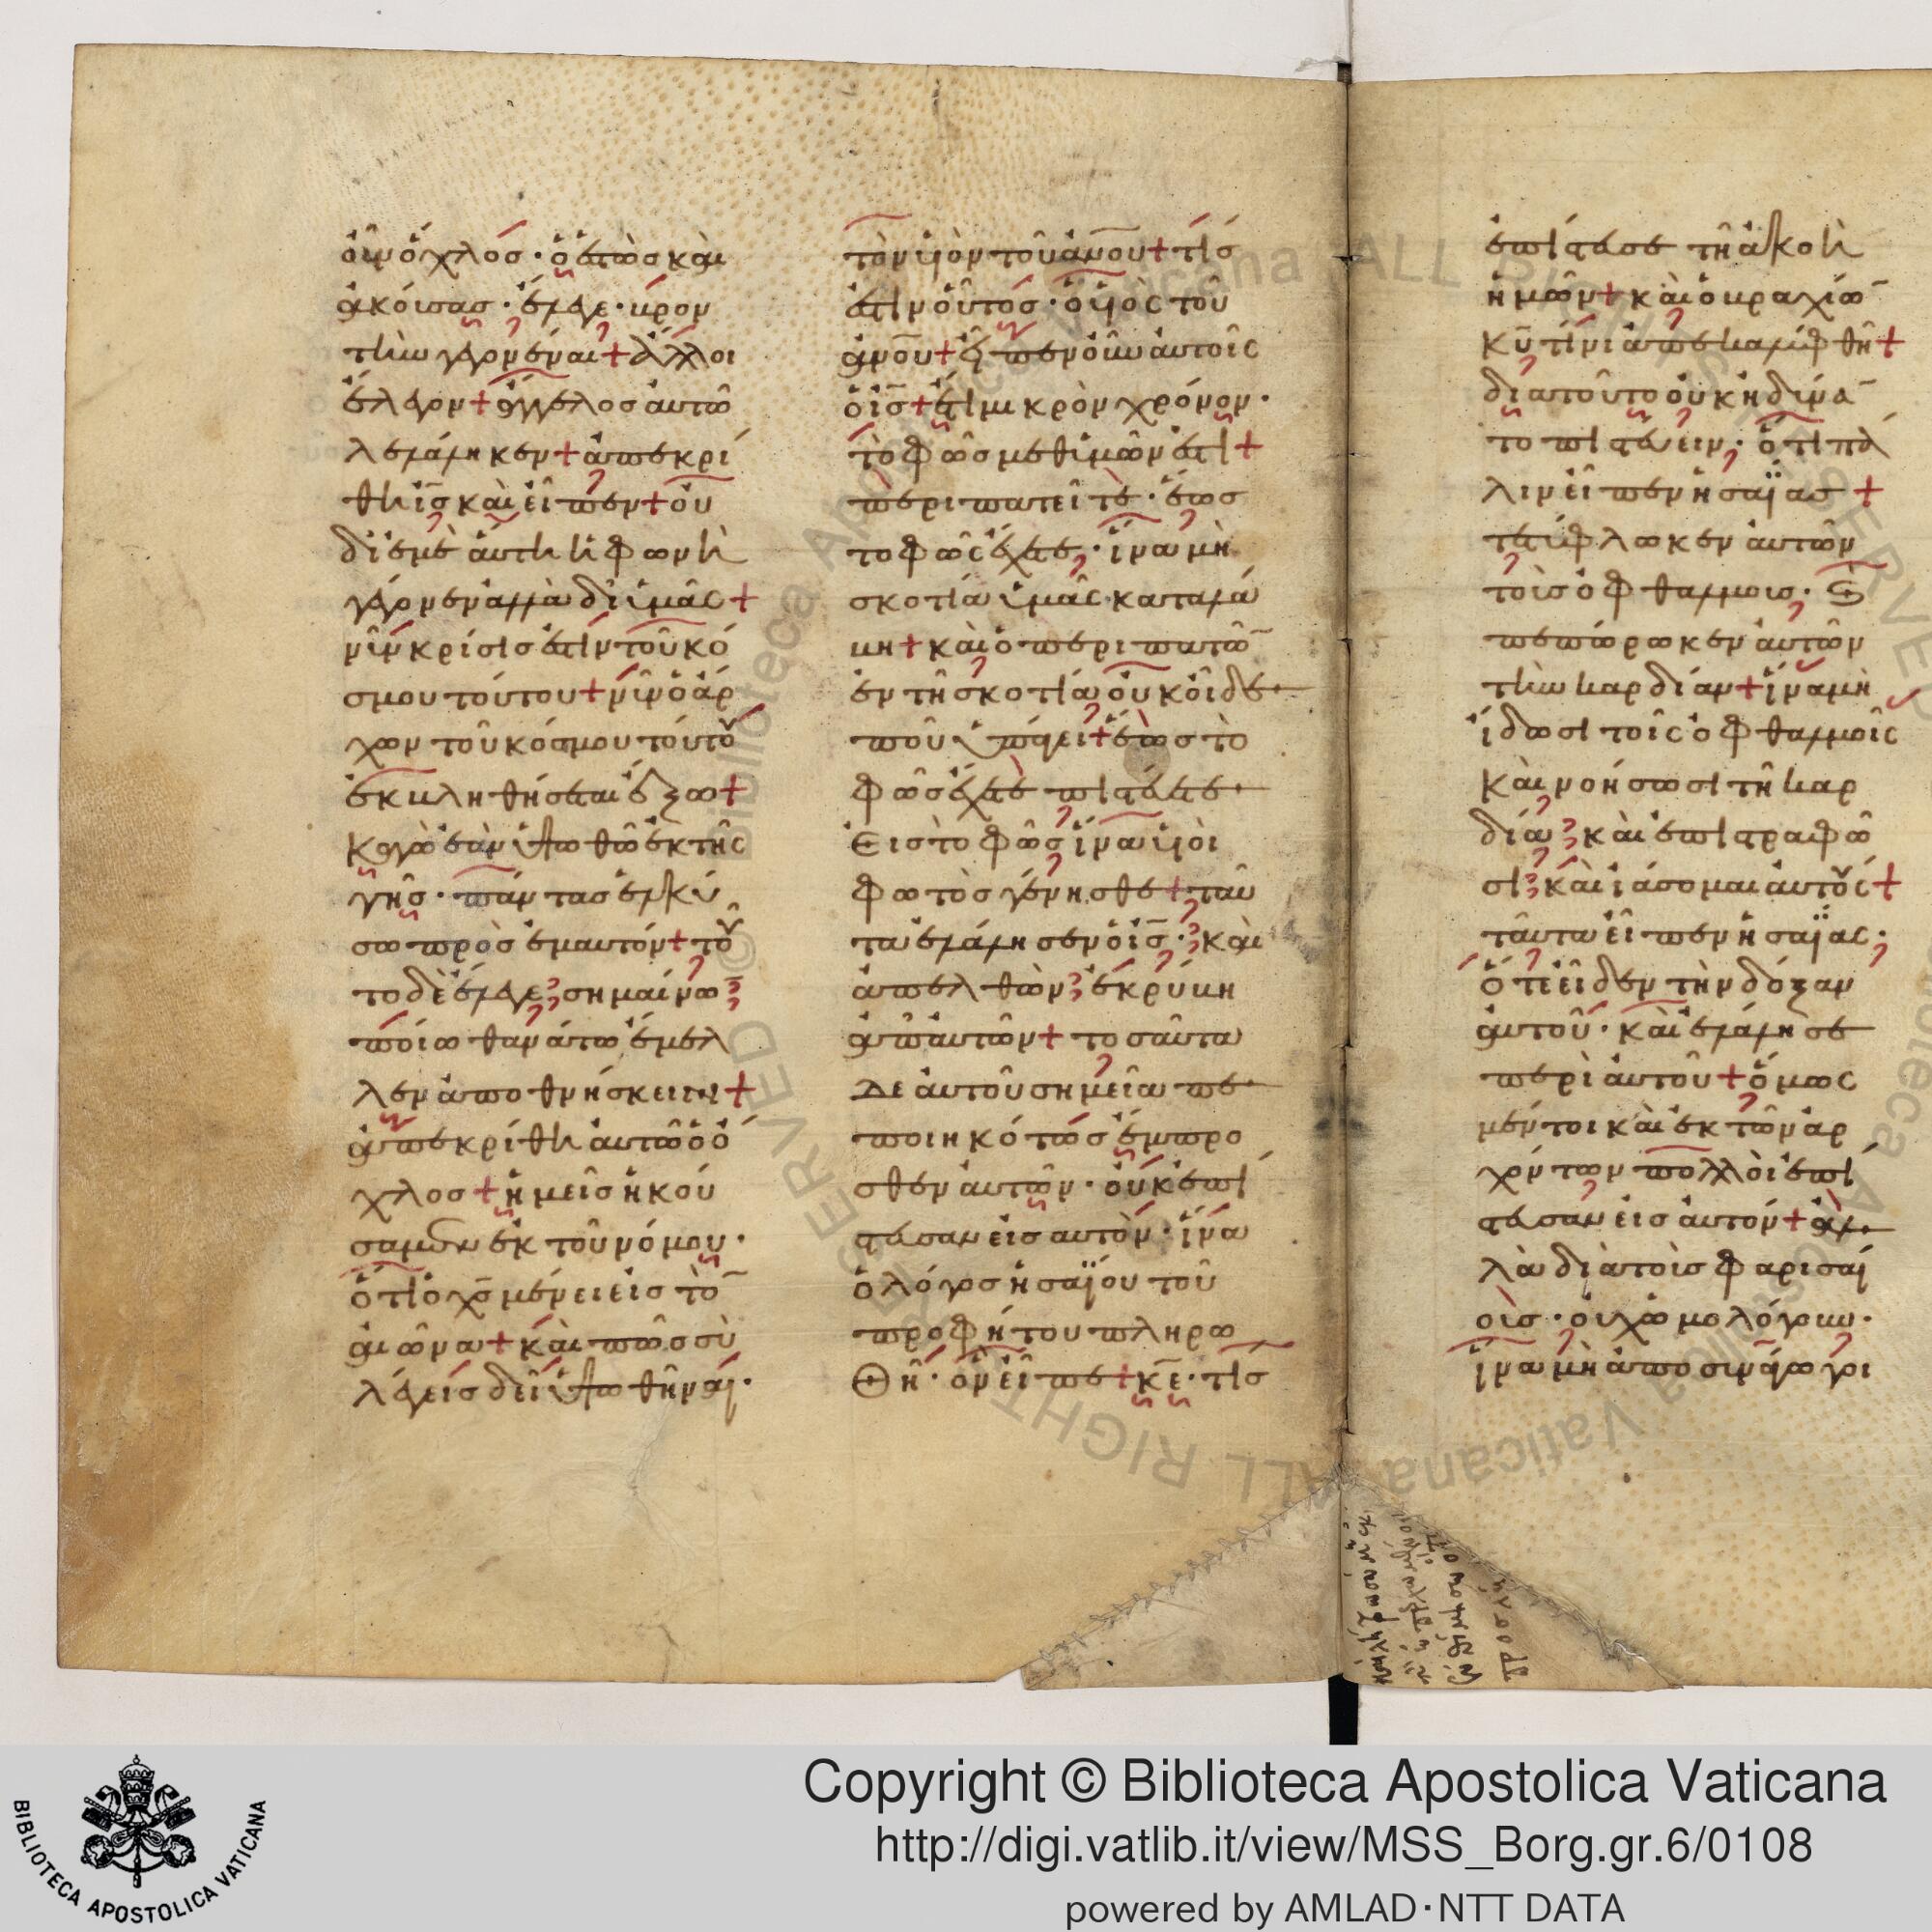 οὖν ὄχλος· ὁ ἑστὼς καὶ
ἀκούσας· ἔλεγε· βρον
τὴν γεγονέναι + ἄλλοι
ἔλεγον + ἄγγελος αὐτῶ
λελάληκεν + ἀπεκρί
θη ἰς καὶ εἶπεν + οὐ
δι ἐμὲ αὕτη ἡ φωνὴ
γέγονεν ἀλλὰ δι ὑμᾶς +
νῦν κρίσις ἐστὶν τοῦ κό
σμου τούτου + νῦν ὁ ἄρ
χων τοῦ κόσμου τούτου
ἐκβληθήσεται ἔξω +
κἀγὼ ἐὰν ὑψωθῶ ἐκ τῆς
γῆς· πάντας ἑλκύ
σω πρὸς ἐμαυτόν + τοῦ
το δὲ ἔλεγε σημαίνω
ποίω θανάτω ἔμελ
λεν ἀποθνήσκειν +
ἀπεκρίθη αὐτῶ ὁ ὄ
χλος + ἡμεῖς ἠκού
σαμεν ἐκ τοῦ νόμου·
ὅτι ὁ χς μένει εἰς το
αἰῶνα + καὶ πῶς σὺ
λέγεις δεῖ ὑψωθῆναι·
τὸν υἱὸν τοῦ ἀνου + τίς
ἐστιν οὗτος· ὁ υἱὸς τοῦ
ἀνου + εἶπεν οὖν αὐτοῖς
ὁ ἰς + ἔτι μικρὸν χρόνον·
τὸ φῶς μεθ ὑμῶν ἐστι +
περιπατεῖτε· ἕως
το φῶς ἔχετε· ἵνα μὴ
σκοτία ὑμᾶς καταλά
βη + καὶ ὁ περιπατῶ
ἐν τῆ σκοτία οὐκ οἶδε·
ποῦ ὑπάγει + ἕως τὸ
φῶς ἔχετε πιστεύετε·
Εἰς τὸ φῶς ἵνα υἱοὶ
φωτὸς γένησθε + ταῦ
τα ἐλάλησεν ὁ ἰς· καὶ
ἀπελθὼν ἐκρύβη
ἀπ αὐτῶν + τοσαῦτα
Δε αὐτοῦ σημεῖα πε
ποιηκότως ἔμπρο
σθεν αὐτῶν· οὐκ ἐπί
στευσαν εἰς αὐτόν· ἵνα
ὁ λόγος ἡσαΐου τοῦ
προφήτου πληρω
Θῆ· ὃν εἶπε + κε· τίς
ἐπίστευσε τῆ ἀκοῆ
ἡμῶν + καὶ ὁ βραχίω
κυ τίνι ἀπεκαλύφθη +
διατοῦτο οὐκ ἠδύνα
το πιστεύειν· ὅτι πά
λιν εἶπεν ἡσαΐας +
τετύφλωκεν αὐτῶν
τοὺς ὀφθαλμους· ϗ
πεπώρωκεν αὐτῶν
τὴν καρδίαν + ἵνα μὴ
ἴδωσι τοῖς ὀφθαλμοῖς
καὶ νοήσωσι τῆ καρ
δία καὶ ἐπιστραφῶ
σι καὶ ἰάσομαι αὐτούς +
ταῦτα εἶπεν ἡσαΐας·
ὅτε εἶδεν τὴν δόξαν
αὐτοῦ· καὶ ἐλάλησε
περὶ αὐτοῦ + ὅμως
μέντοι καὶ ἐκ τῶν ἀρ
χόντων πολλοὶ ἐπί
στευσαν εἰς αὐτόν + ἀλ
λὰ διὰ τοὺς φαρισαί
ους· οὐχ ὡμολόγουν·
ἵνα μὴ ἀποσυνάγωγοι
BIBLIOTECA APOSTOLICA VATICANA
Copyright © Biblioteca Apostolica Vaticana
http://digi.vatlib.it/view/MSS_Borg.gr.6/0108
powered by AMLAD·NTT DATA